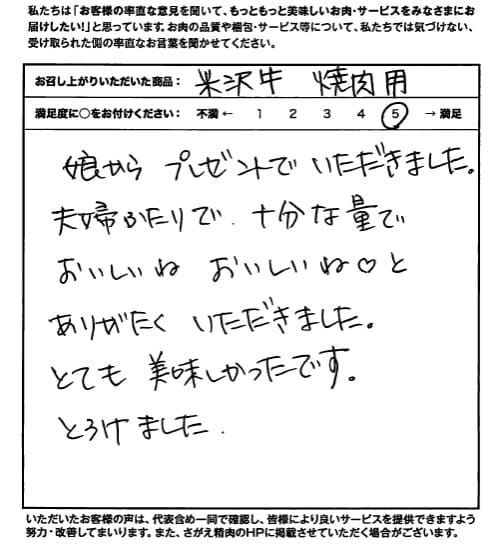 私たちは「お客様の率直な意見を聞いて、もっともっと美味しいお肉・サービスをみなさまにお
届けしたい!」と思っています。お肉の品質や梱包・サービス等について、私たちでは気づけない、
受け取られた側の率直なお言葉を聞かせてください。
お召し上がりいただいた商品： 米沢牛 焼肉用
満足度に○をお付けください： 不満 ← 1 2 3 4 5 → 満足
娘から プレゼントで いただきました。
夫婦ふたりで 十分な量で
おいしいね おいしいね♡と
ありがたく いただきました。
とても 美味しかったです。
とろけました.
いただいたお客様の声は、代表含め一同で確認し、皆様により良いサービスを提供できますよう
努力・改善してまいります。また、さがえ精肉のHPに掲載させていただく場合がございます。